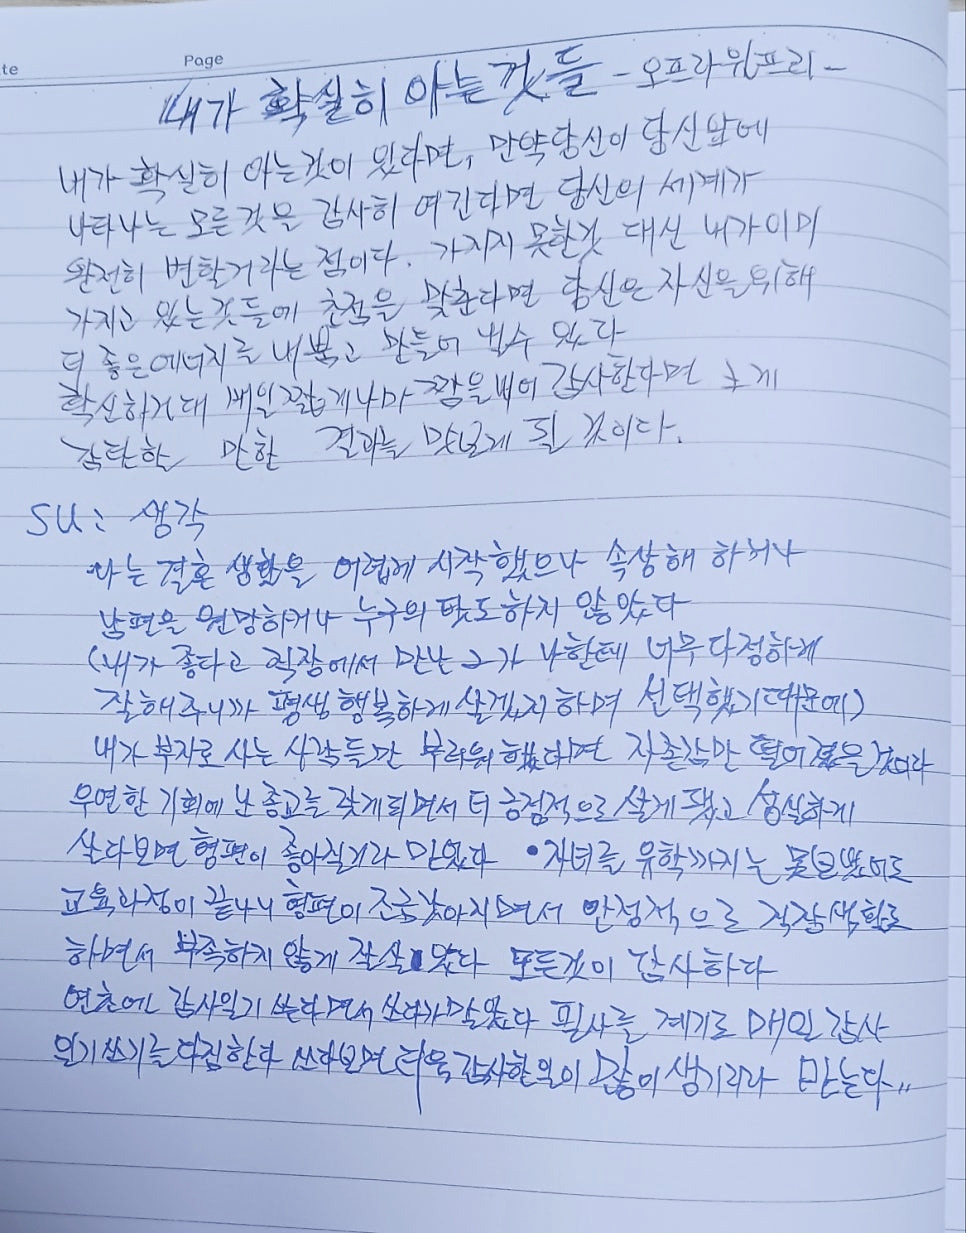 te
Page
내가 확실히 아는것들 - 오프라윈프리 -
내가 확실히 아는것이 있다면, 만약당신이 당신앞에
나타나는 모든것을 감사히 여긴다면 당신의 세계가
완전히 변할거라는 점이다. 가지지 못한것 대신 내가이미
가지고 있는것들에 초점을 맞춘다면 당신은 자신을위해
더 좋은에너지를 내뿜고 만들어 낼수 있다
확신하건대 매일 짧게나마 짬을내어 감사한다면 크게
감탄할 만한 결과를 맛보게 될 것이다.
SU: 생각
나는 결혼 생활을 어렵게 시작했으나 속상해 하거나
남편을 원망하거나 누구의 탓도하지 않았다
(내가 좋다고 직장에서 만난 그가 나한테 너무다정하게
잘해주니까 평생 행복하게살겠지하며 선택했기때문에)
내가 부자로 사는 사람들만 부러워했다면 자존감만 떨어졌을것이라
우연한 기회에 난 종교를 갖게되면서 더 긍정적으로 살게됐고 성실하게
살다보면 형편이 좋아질거라 믿었다 •자녀를 유학까지는 못보냈어도
교육과정이 끝나니 형편이 조금낳아지면서 안정적으로 직장생활로
하면서 부족하지 않게 잘살았다 모든것이 감사하다
연초에 감사일기 쓴다면서 쓰다가말았다 필사를 계기로 매일 감사
일기쓰기를다짐한다 쓰다보면 더욱감사할일이 많이 생기리라 믿는다"